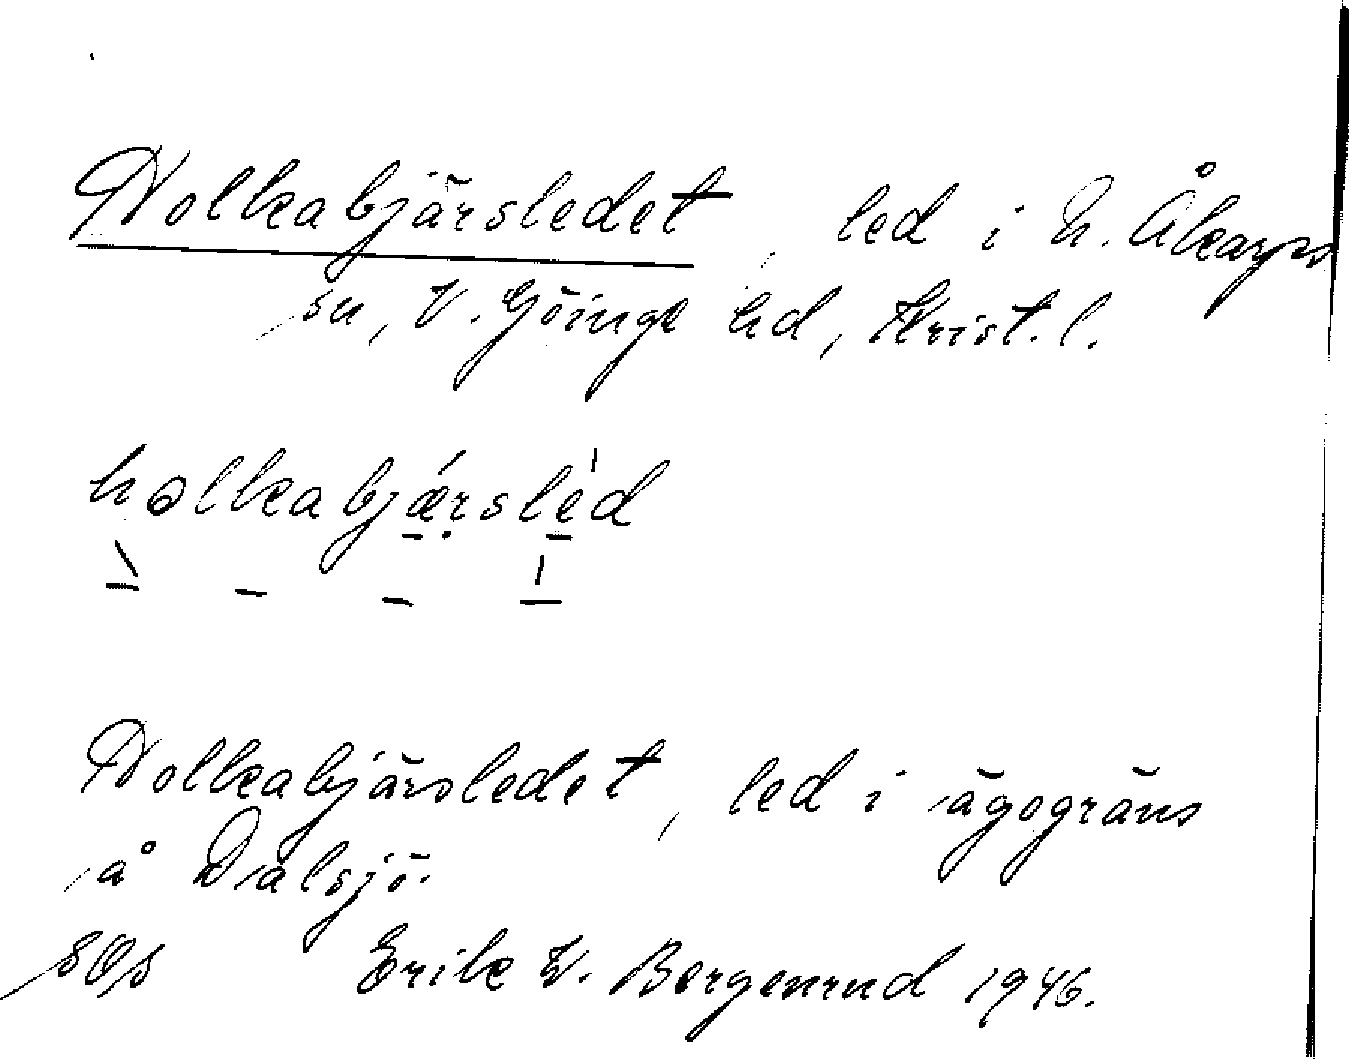 Holkabjärsledet, led i N. Åkarps
sn, V. Göinge hd, Krist. l.
holkabjærsled
Holkabjärsledet, led i ägogräns
å Dalsjö.
Erik W. Bergenrud 1946.